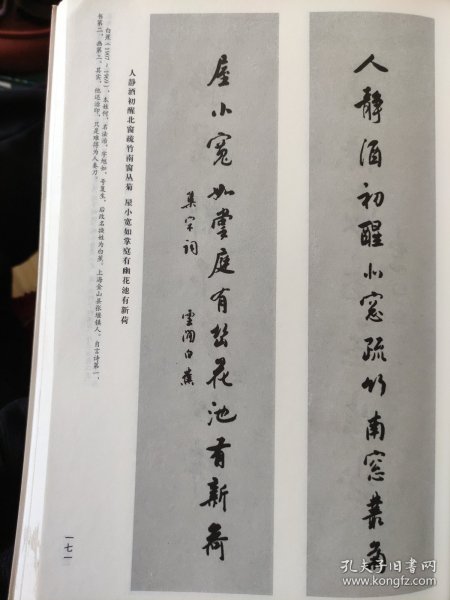 人靜酒初醒北窓疏竹南窓叢菊
屋小寬如掌庭有幽花池有新荷
集宋詞
雲間白蕉
人静酒初醒北窗疏竹南窗丛菊 屋小宽如掌庭有幽花池有新荷
白蕉(1907~1969),本姓何,名法治,字旭如,号复生,后改名换姓为白蕉。上海金山县张堰镇人。自言诗第一、
书第二、画第三。其实,他还治印,只是难得为人奏刀。
一七一
孔夫子旧书网
www.kongfz.com